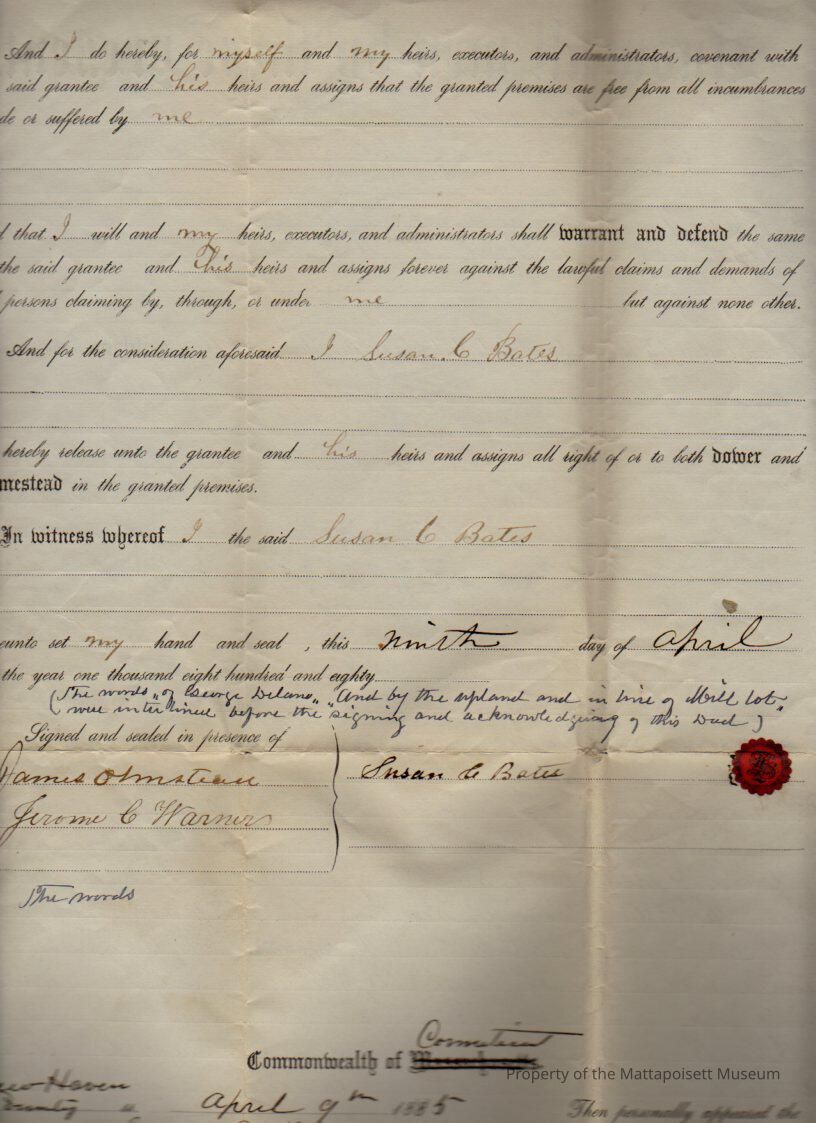 And I do hereby, for myself and my heirs, executors, and administrators, covenant with
said grantee and his heirs and assigns that the granted premises are free from all incumbrances
de or suffered by me
that I will and my heirs, executors, and administrators shall warrant and defend the same
the said grantee and his heirs and assigns forever against the lawful claims and demands of
persons claiming by, through, or under me but against none other.
And for the consideration aforesaid I Susan C Bates
hereby release unto the grantee and his heirs and assigns all right of or to both dower and
mestead in the granted premises.
In witness whereof I the said Susan C Bates
eunto set my hand and seal, this ninth day of April
the year one thousand eight hundred and eighty
(The words "of George Delano" "And by the upland and in line of Mill Lot"
were interlined before the signing and acknowledgeing of this Deed)
Signed and sealed in presence of
James Olmstead Susan C Bates
Jerome C Warner
The words
Connecticut
Commonwealth of
Property of the Mattapoisett Museum
New Haven
County ss. April 9th 1885 Then personally appeared the